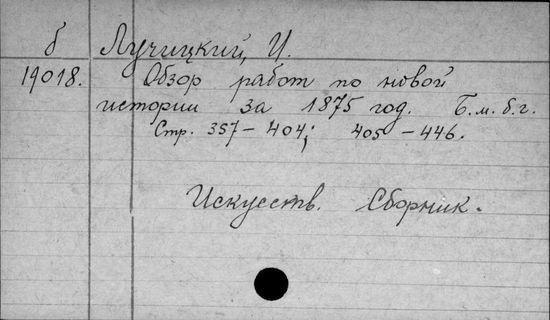 б Лучицкий, И.
19018. Обзор работ по новой
истории за 1875 год. Б.м.б.г.
Стр. 357-404; 405-446.
Искусств. Сборник.